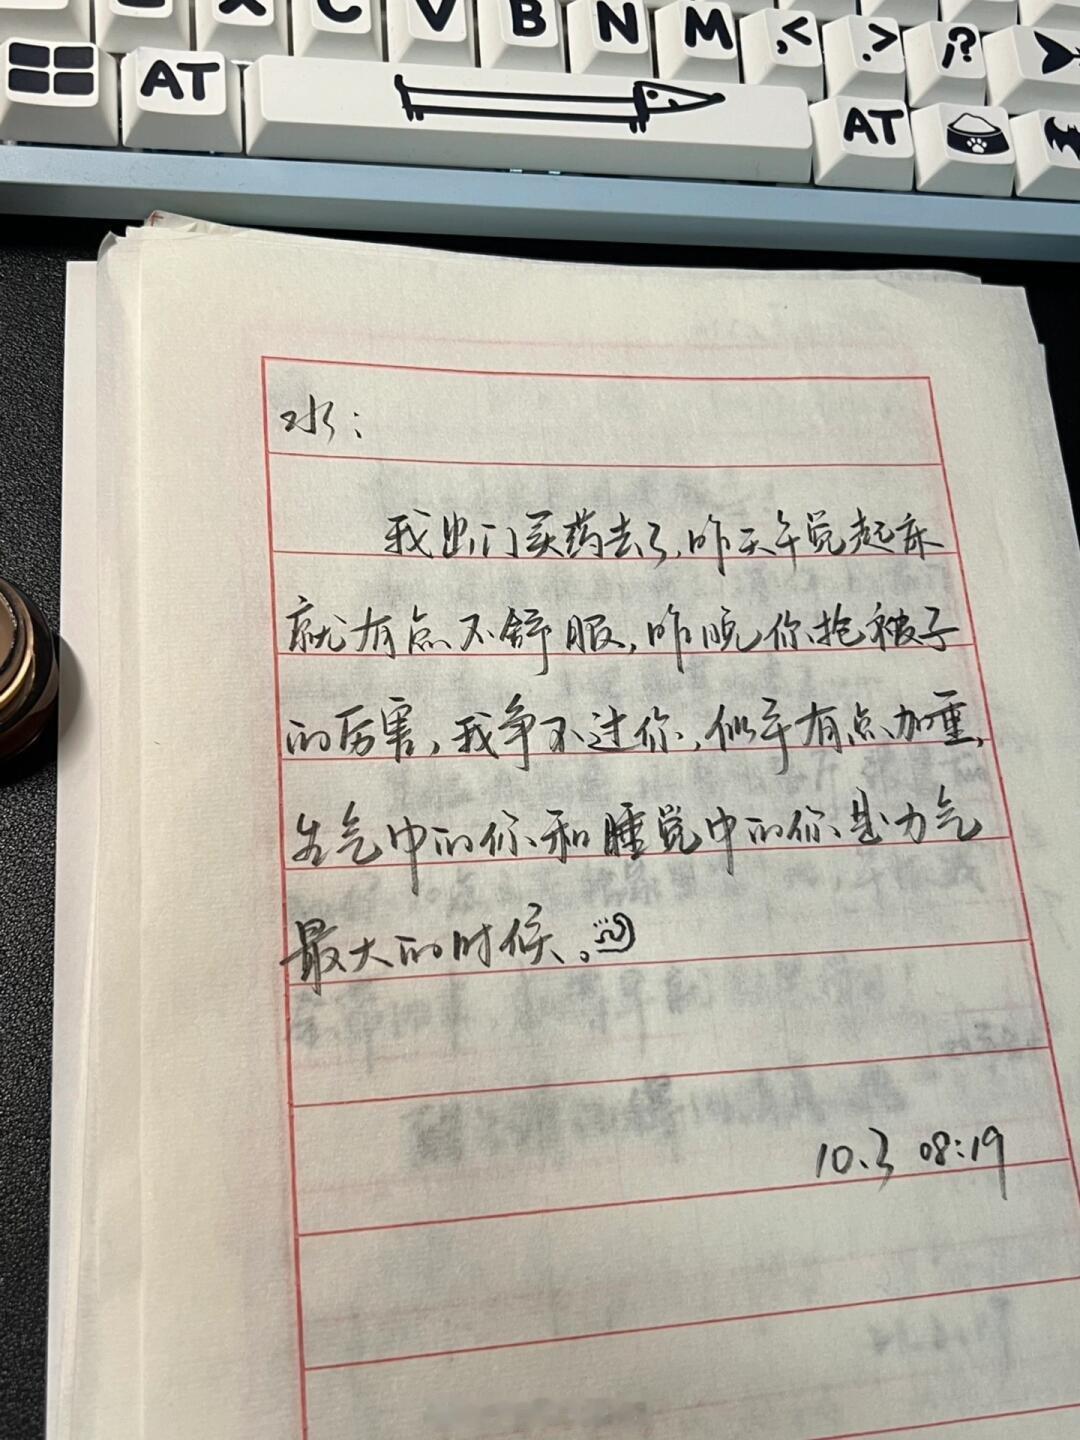 X C V B N M , < . > / ?
AT AT
水：
我出门买药去了，昨天午觉起床
就有点不舒服，昨晚你抢被子
的厉害，我争不过你，似乎有点加重，
生气中的你和睡觉中的你是力气
最大的时候。
10.3 08:19